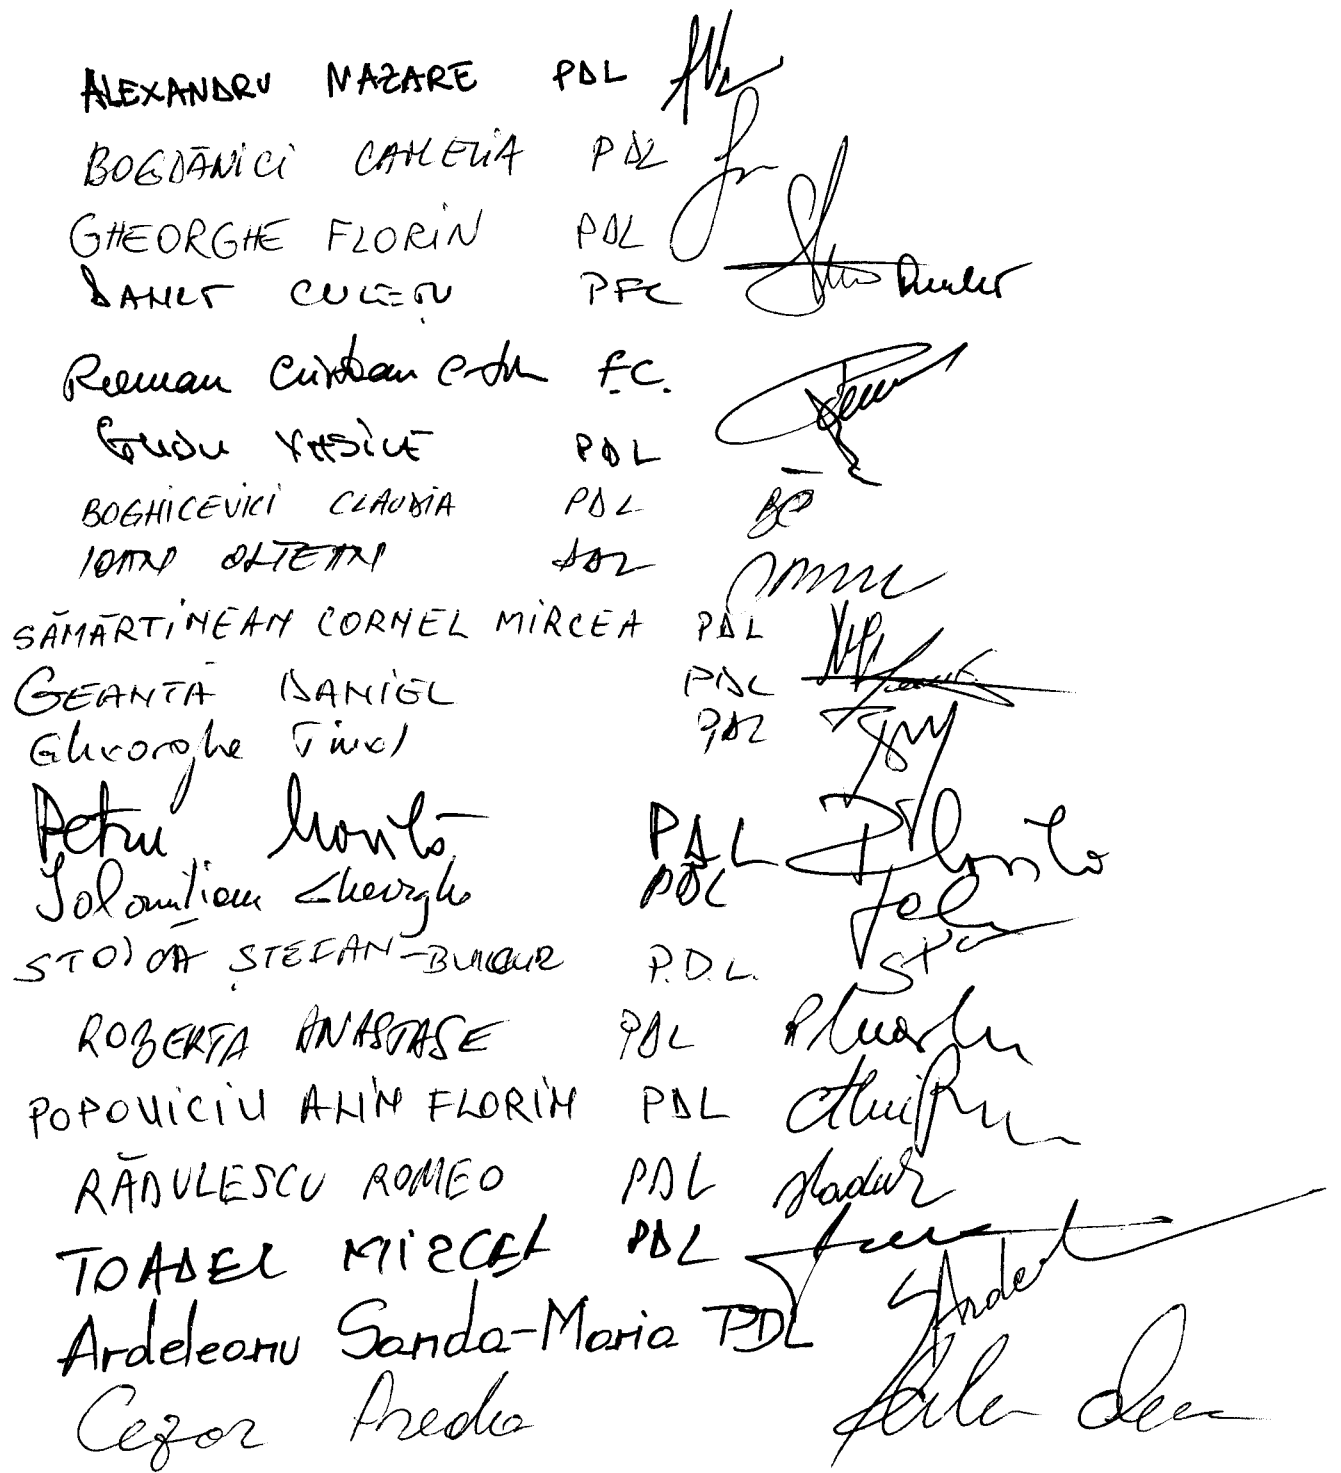 ALEXANDRU NAZARE PDL
BOGDĂNICI CAMELIA PDL
GHEORGHE FLORIN PDL
DANUT CULEȚU
Roman Cristian F.C.
GUDU VASILE PDL
BOGHICEVICI CLAUDIA PDL
IOAN OLTEAN PDL
SĂMĂRTINEAN CORNEL MIRCEA PDL
GEANTĂ DANIEL PDL
Gheorghe Tinel PDL
Petru Movilă PDL
Ialomițianu Gheorghe PDL
STOICA ȘTEFAN-BUCUR P.D.L.
ROBERTA ANASTASE PDL
POPOVICIU ALIN FLORIN PDL
RĂDULESCU ROMEO PDL
TOADER MIRCEA PDL
Ardeleanu Sanda-Maria PDL
Cezar Preda